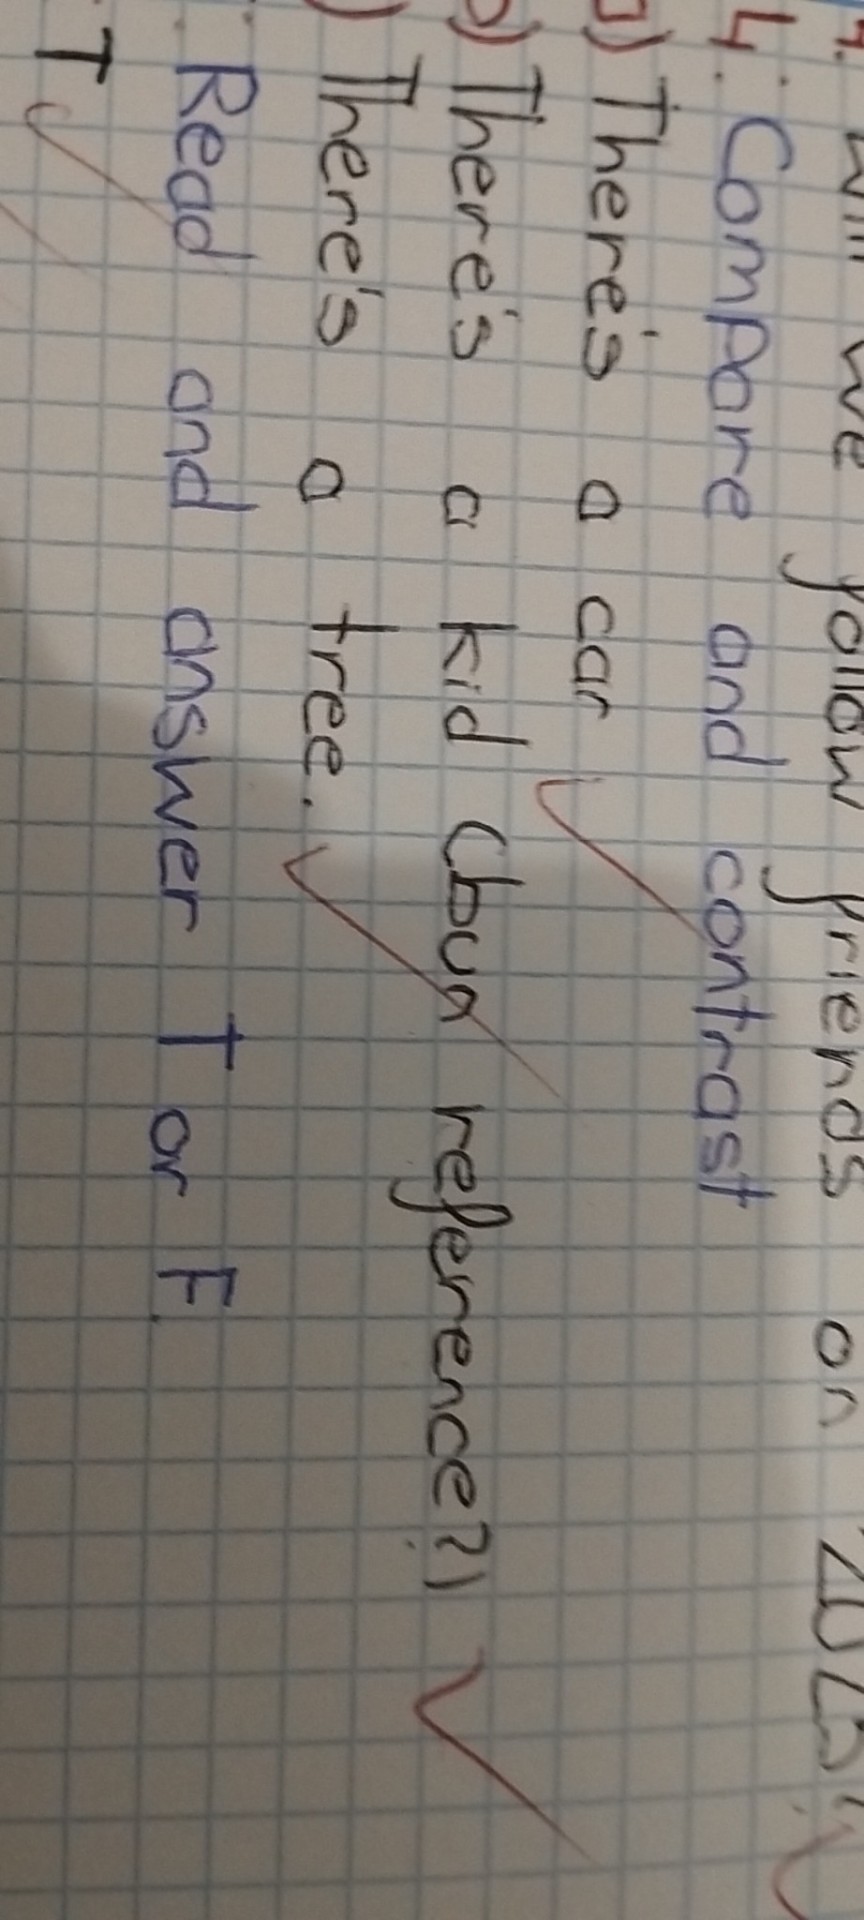 will we follow friends on
4. Compare and contrast
a) There's a car
b) There's a kid (bua reference?)
) There's a tree.
Read and answer T or F.
T